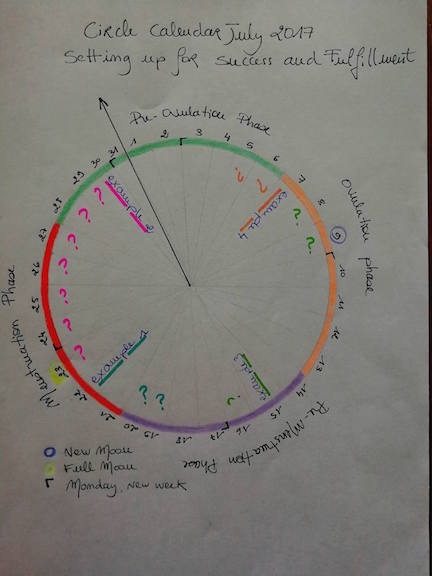 Circle Calendar July 2017
Setting up for success and Fulfillment
Pre-Ovulation Phase
Ovulation phase
Pre-Menstruation Phase
Menstruation Phase
1
2
3
4
5
6
7
8
9
10
11
12
13
14
15
16
17
18
19
20
21
22
23
24
25
26
27
28
29
30
31
example 2
? ? ? ? ? ? ?
example 4
? ?
? ?
example 3
?
example 1
? ?
New Moon
Full Moon
Monday, new week